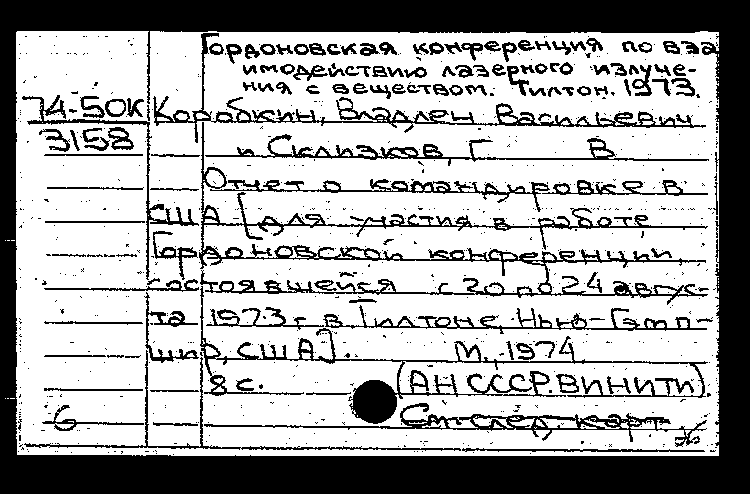 Гордоновская конференция по вза
имодействию лазерного излуче-
ния с веществом. Тилтон. 1973.
74-50к Коробкин, Владлен Васильевич
3158
и Склизков, Г В
Отчет о командировке в
США [для участия в работе
Гордоновской конференции,
состоявшейся с 20 по 24 авгус-
та 1973 г. в Тилтоне, Нью-Гэмп-
шир, США]. М., 1974
8 с. (АН СССР. ВИНИТИ).
6 См. след. карт.